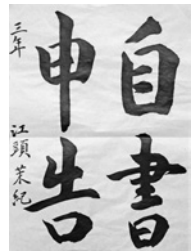 自書
申告
三年 江頭 茉紀